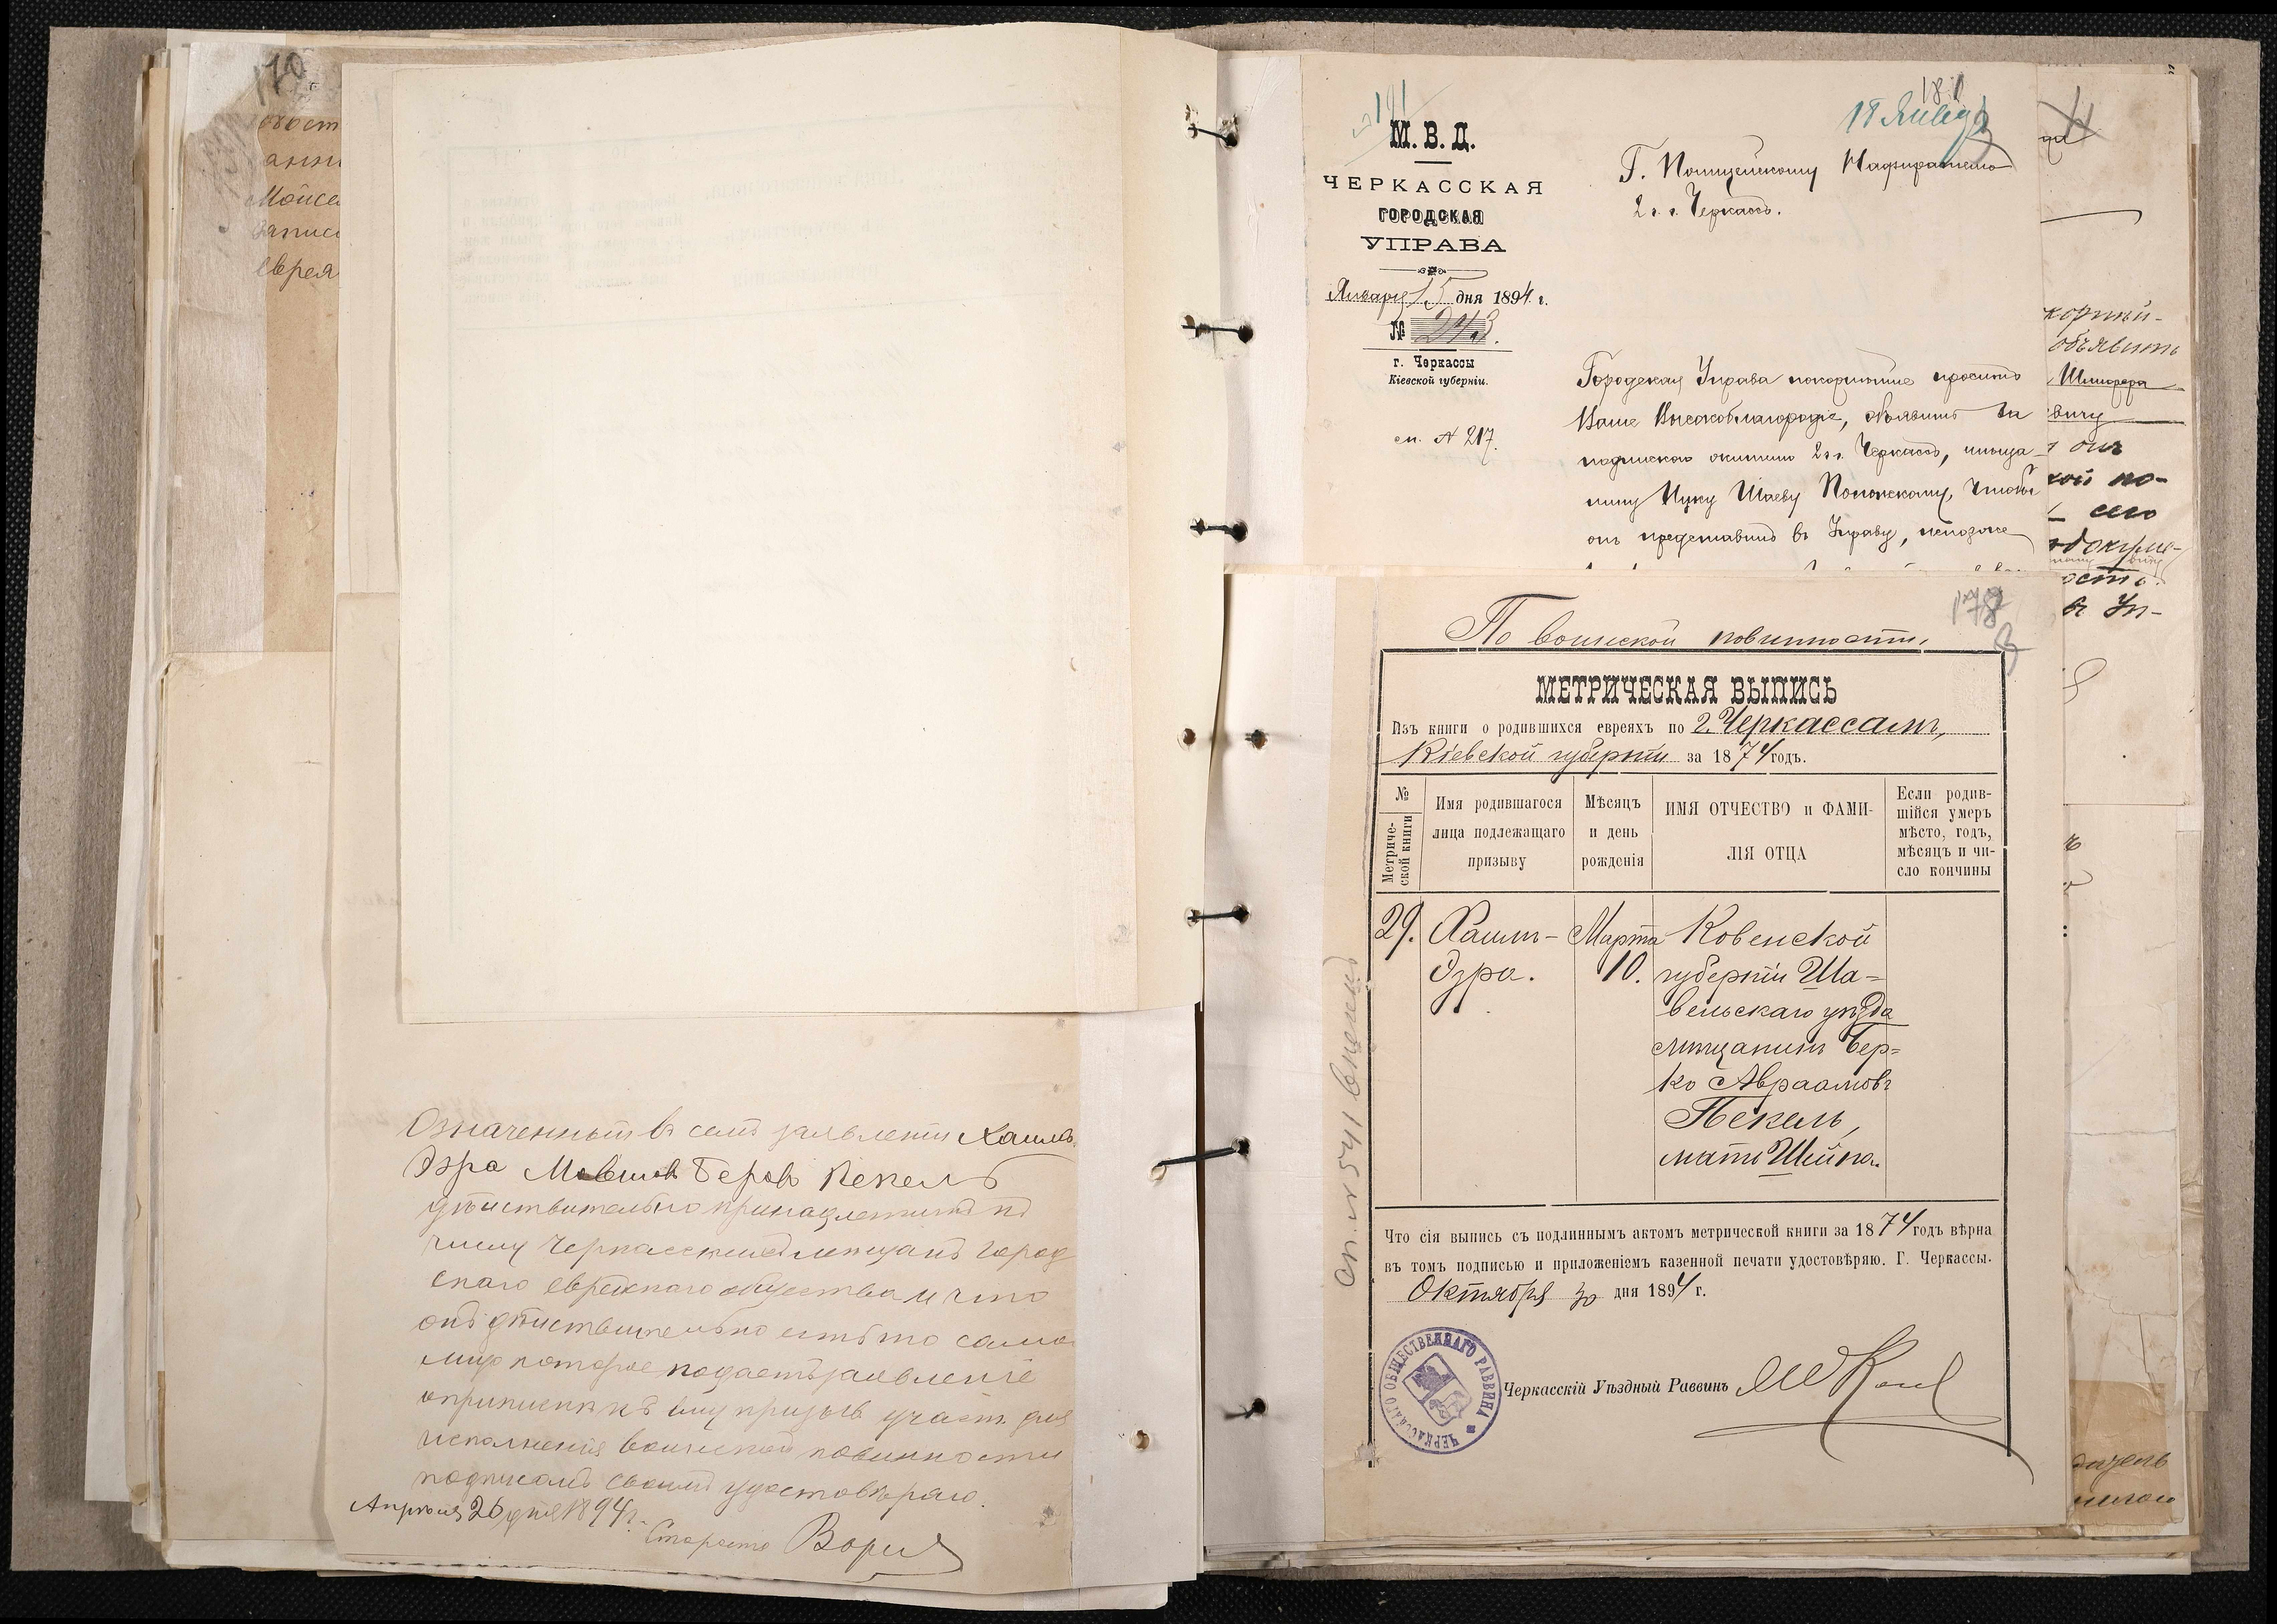 170
Моисе
записа
еврея
Означенный въ семъ заявленіи Хаимъ
Эзра Мовшов Беровъ Пекель
дѣйствительно принадлежитъ къ
числу Черкасскихъ мещанъ город
скаго еврейскаго общества и что
онъ дѣйствительно есть то само
лицо которое подаетъ заявленіе
о припискѣ къ призыв участ. для
исполненія воинской повинности
подписомъ своимъ удостовѣряю.
Апрѣля 26 дня 1894 г.
Староста
181
18 Января
М. В. Д.
ЧЕРКАССКАЯ
ГОРОДСКАЯ
УПРАВА
Января 15 дня 1894 г.
№ 243.
г. Черкассы
Кіевской губерніи.
сп. № 217.
Г. Полицейскому Надзирателю
2 ч. г. Черкассъ.
Городская Управа покорнѣйше проситъ
Ваше Высокоблагородіе, объявить
подпискою жителю 2 ч. г. Черкассъ, мѣща-
нину Ицку Шаеву Полонскому, чтобы
онъ представилъ въ Управу, непозже
корнѣй-
объявить
Шлифера
вичу
онъ
кой по-
сего
докуме-
ость.
въ Уп-
178
По воинской повинности,
МЕТРИЧЕСКАЯ ВЫПИСЬ
Изъ книги о родившихся евреяхъ по г. Черкассамъ,
Кіевской губерніи за 1874 годъ.
№ Метриче-ской книги
Имя родившагося лица подлежащаго призыву
Мѣсяцъ и день рожденія
ИМЯ ОТЧЕСТВО и ФАМИ-ЛІЯ ОТЦА
Если родив-шійся умеръ мѣсто, годъ, мѣсяцъ и чи-сло кончины
29. Хаимъ- Марта Ковенской
Эзра. 10. губерніи Ша-
вельскаго уѣзда
мѣщанинъ Бер-
ко Авраамовъ
Пекель,
мать Шейна.
Что сія выпись съ подлиннымъ актомъ метрической книги за 1874 годъ вѣрна
въ томъ подписью и приложеніемъ казенной печати удостовѣряю. Г. Черкассы.
Октября 30 дня 1894 г.
Черкасскій Уѣздный Раввинъ
ЧЕРКАССКАГО ОБЩЕСТВЕННАГО РАВВИНА
сп. № 541 внесенъ